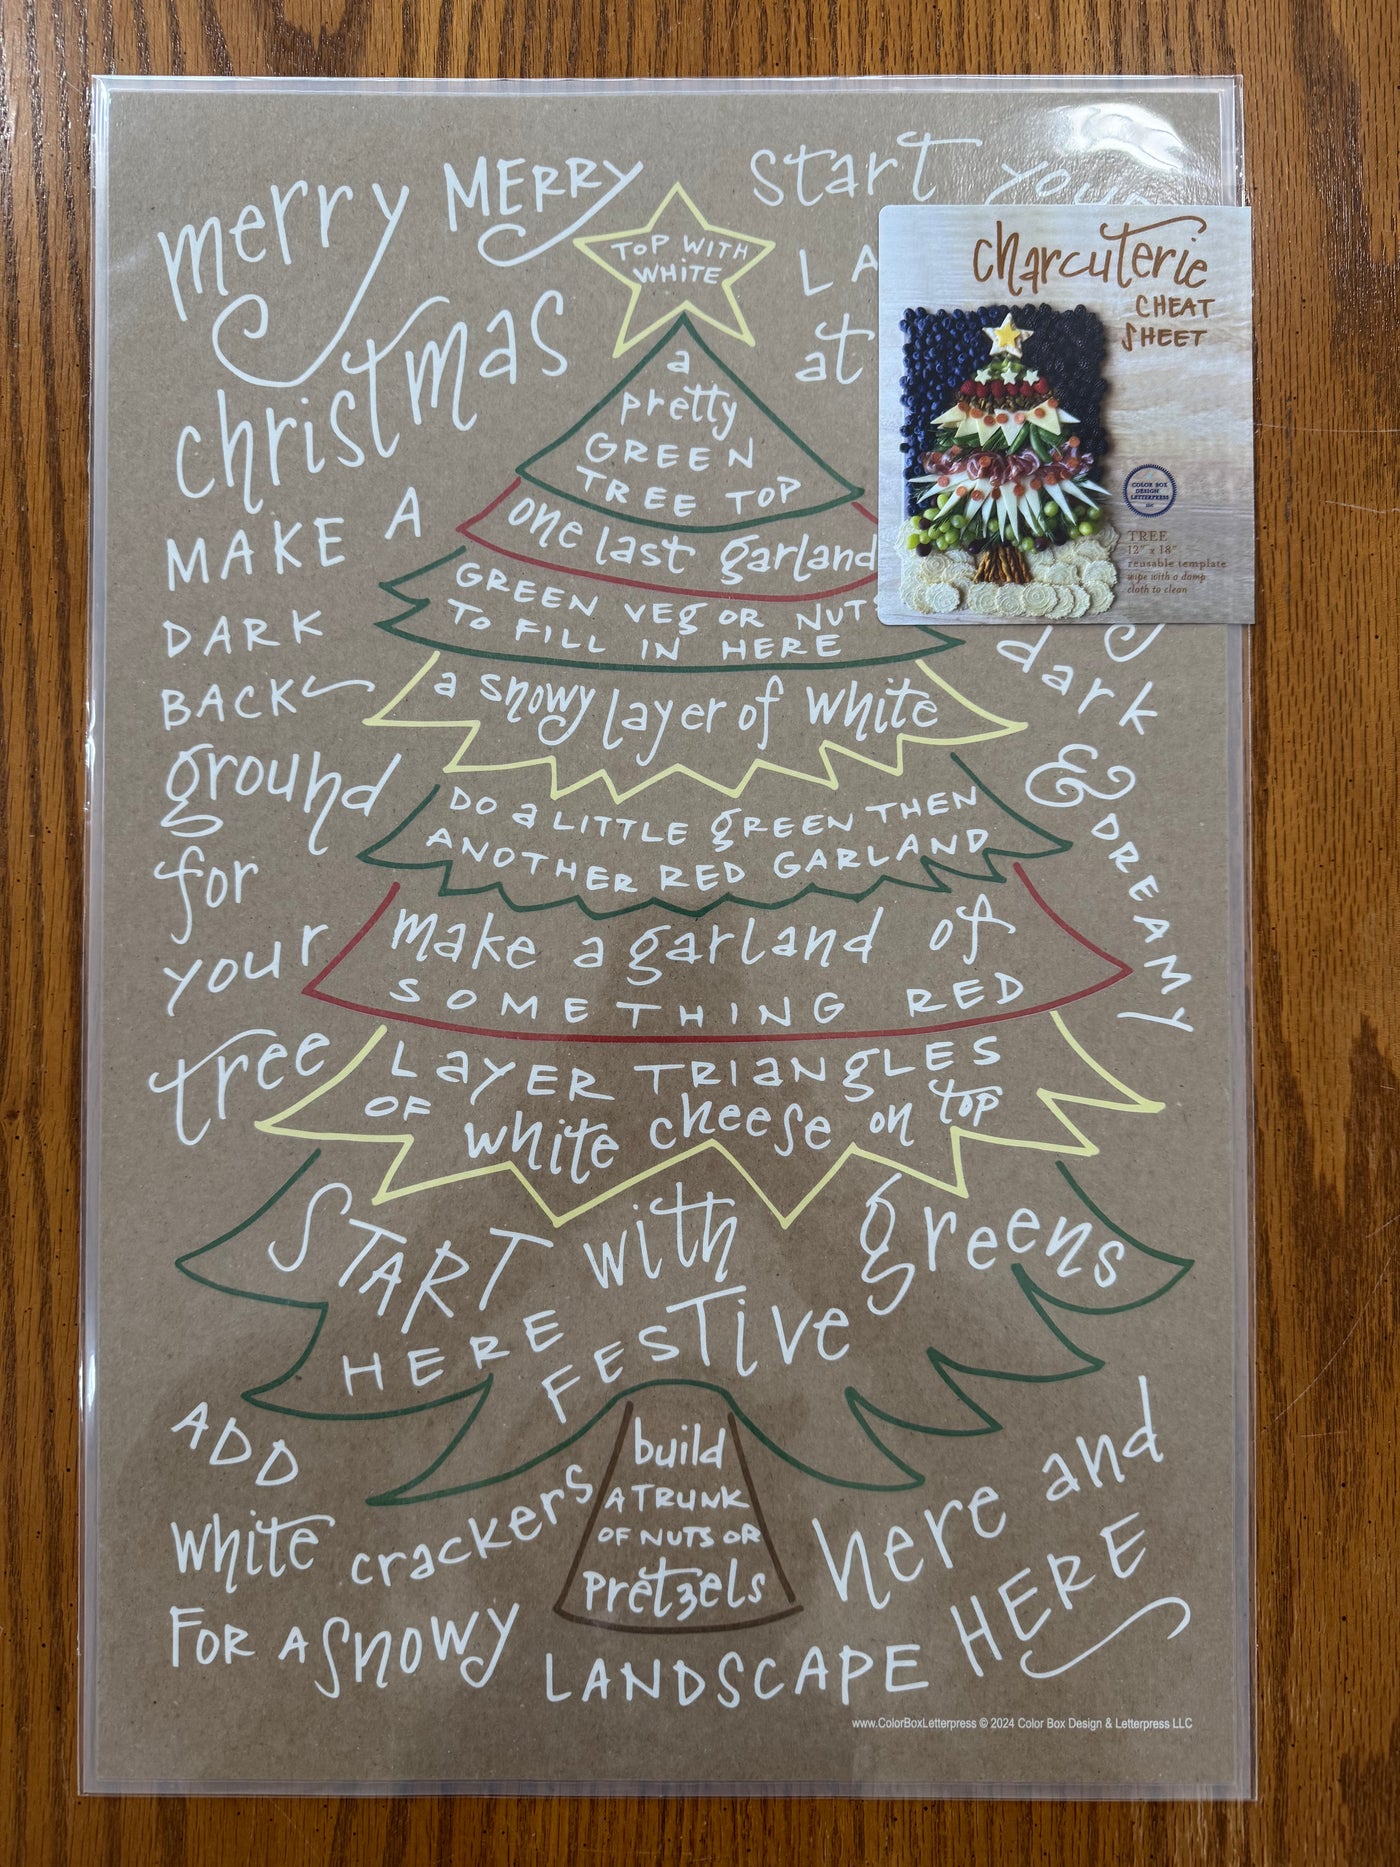 merry MERRY
christmas
MAKE A
DARK
BACK
ground
for
your
tree
start your
LA
at
TOP WITH
WHITE
a
pretty
GREEN
TREE TOP
one last garland
GREEN VEG OR NUTS
TO FILL IN HERE
a snowy layer of white
DO a LITTLE GREEN THEN
ANOTHER RED GARLAND
make a garland of
SOMETHING RED
LAYER TRIANGLES
OF white cheese on top
START with greens
HERE FESTIVE
build
A TRUNK
OF NUTS OR
pretzels
dark
&
DREAMY
ADD
white crackers
FOR A SNOWY
LANDSCAPE
here and
HERE
www.ColorBoxLetterpress © 2024 Color Box Design & Letterpress LLC
charcuterie
CHEAT
SHEET
COLOR BOX
DESIGN
LETTERPRESS
LLC
TREE
12" x 18"
reusable template
wipe with a damp
cloth to clean